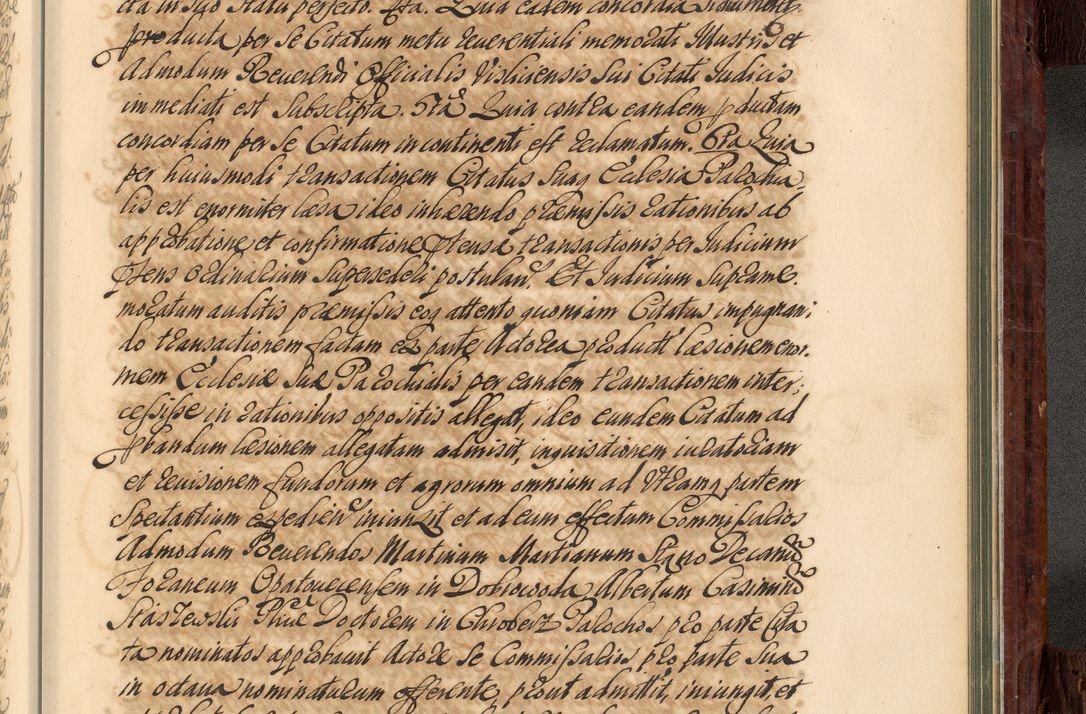 ta in suo statu perfecto. Ita. Quia eadem concordia
producta per se Citatum metu reverentiali memorati Illustris et
Admodum Reverendi Officialis Visliciensis sui Citati Judicis
immediati est subscripta. Ita Quia contra eandem productam
concordiam per se Citatum in continenti est reclamatum. Ita Quia
per huiusmodi transactionem Citatus suaq Ecclesia Parochia
lis est enormiter læsa ideo inhærendo præmissis rationibus ab
approbatione et confirmatione ptensæ transactionis per Judicium
pñens ordinarium supersederi postulav. Et Judicium supramė
moratum auditis præmissis eoq attento quoniam Citatus impugnan:
do transactionem factam ex parte Actorea product læsionem enor:
mem Ecclesiæ suæ Parochialis per eandem transactionem inter:
cessisse in rationibus oppositis allegat, ideo eundem Citatum ad
pbandum læsionem allegatam admisit, inquisitionem iuratoriam
et revisionem fundorum et agrorum omnium ad Vtramq partem
spectantium expedien iniunxit et ad eum effectum Commissarios
Admodum Reverendos Martinum Martianum Decanu
Foraneum Opatovecensem in Dobrowoda Albertum Casimiru
Staszewski Doctorem in Chroberz Parochos pro parte Cita
ta nominatos approbavit Actore se Commissarios pro parte sua
in octava nominaturum offerente, prout admittit, iniungit, et